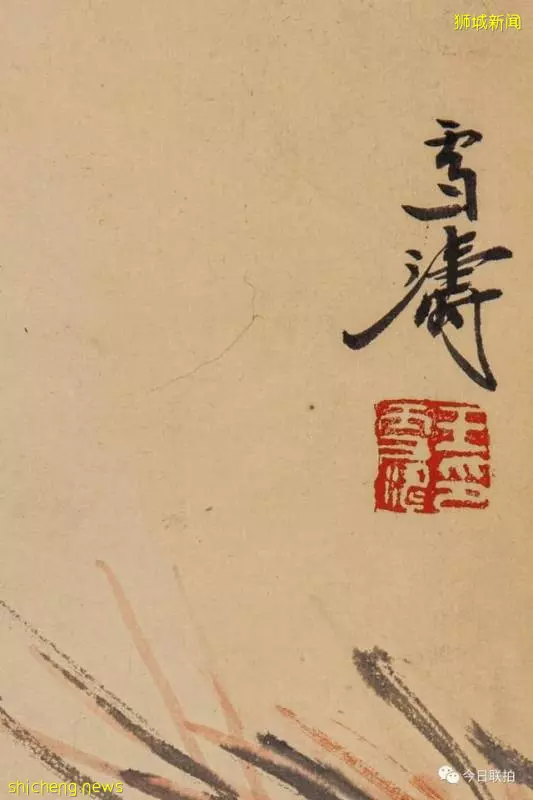 狮城新闻
雪濤
王印
雪濤
今日联拍
shicheng.news